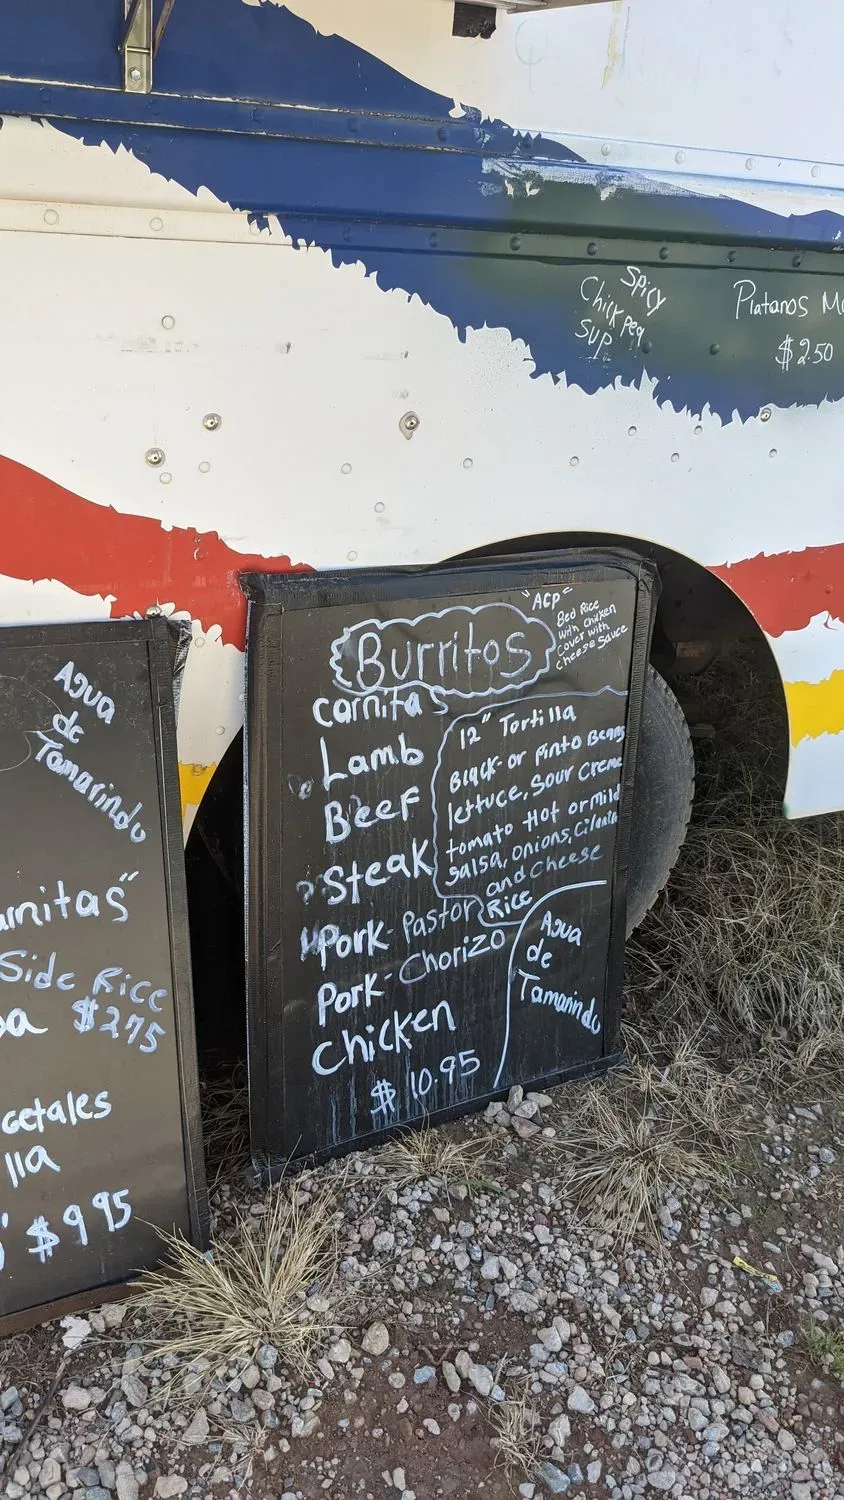 Spicy
Chick pea
sup
Platanos
$2.50
"ACP"
Bed Rice
with chicken
cover with
cheese sauce
Burritos
carnitas
Lamb
Beef
Steak
Pork-Pastor
Pork-Chorizo
Chicken
$10.95
12" Tortilla
Black-or pinto Beans
lettuce, Sour Creme
tomato Hot or mild
Salsa, Onions, Cilantro
and cheese
Rice
Agua
de
Tamarindo
Agua
de
Tamarindo
Side Rice
$2.75
$9.95